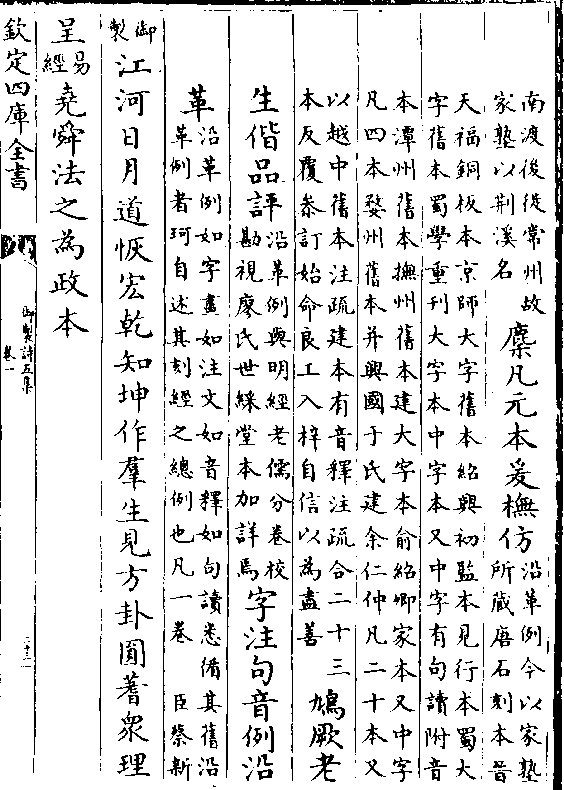 南渡後徙常州故
家塾以荆溪名
麋凡元本爰橅仿
沿革例今以家塾
所藏唐石刻本晉
天福銅板本京師大字舊本紹興初監本見行本蜀大
字舊本蜀學重刊大字本中字本又中字有句讀附音
本潭州舊本撫州舊本建大字本俞紹卿家本又中字
凡四本婺州舊本并興國于氏建余仁仲凡二十本又
以越中舊本注疏建本有音釋注疏合二十三
本反覆叅訂始命良工入梓自信以為盡善
鳩厥老
生偕品評
沿革例與明經老儒分卷校
勘視廖氏世綵堂本加詳焉
字注句音例沿
革
沿革例如字畫如注文如音釋如句讀悉循其舊沿
革例者珂自述其刻經之總例也凡一卷 臣蔡新
御製江河日月道恢宏乾知坤作羣生見方卦圓蓍衆理
呈易經堯舜法之為政本
欽定四庫全書
御製詩五集
卷一
二十二